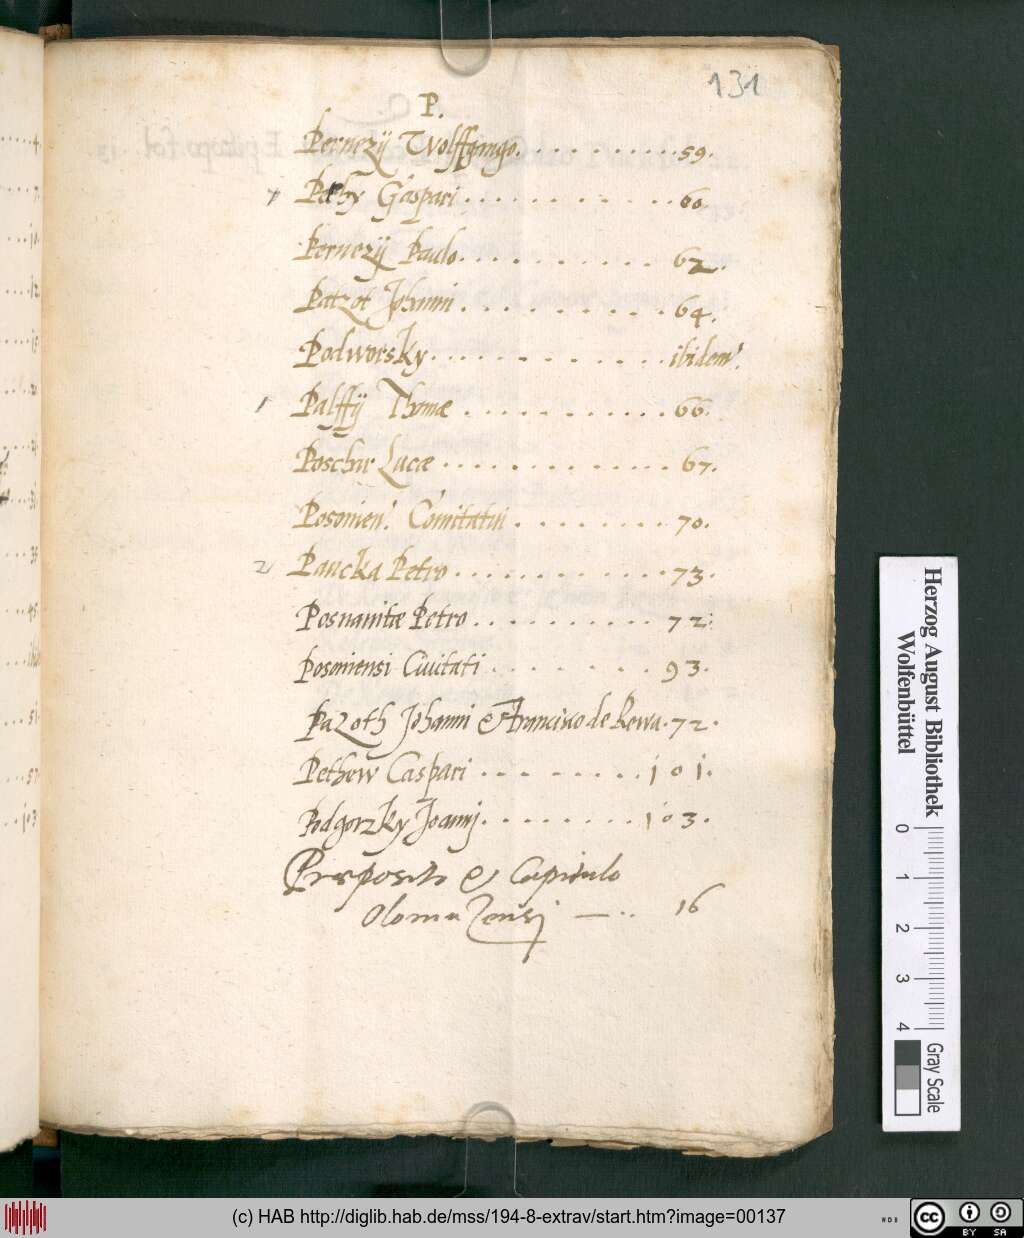 131
P.
Pernezÿ Wolffgango. . . . . . . . . . 59.
Pethy Gaspari . . . . . . . . . . . 60.
Pernezÿ Paulo. . . . . . . . . . 62.
Patzot Johanni . . . . . . . . . . 64.
Podworsky . . . . . . . . . . . ibidem.
Palffÿ Thomæ . . . . . . . . . . 66.
Poschar Lucæ . . . . . . . . . . . 67.
Posonien: Comitatui . . . . . . . 70.
2 Pancka Petro . . . . . . . . . . 73.
Posnanitæ Petro . . . . . . . . . 72.
Posoniensi Ciuitati . . . . . . . 93.
Pazoth Johanni & Francisco de Rewa. 72.
Pethew Caspari . . . . . . . . . 101.
Podgorzky Joanni. . . . . . . . . 103.
Præposito & Capitulo
Olomuzensi — .. 16
Herzog August Bibliothek
Wolfenbüttel
0 1 2 3 4
Gray Scale
(c) HAB http://diglib.hab.de/mss/194-8-extrav/start.htm?image=00137
WDB
cc BY SA